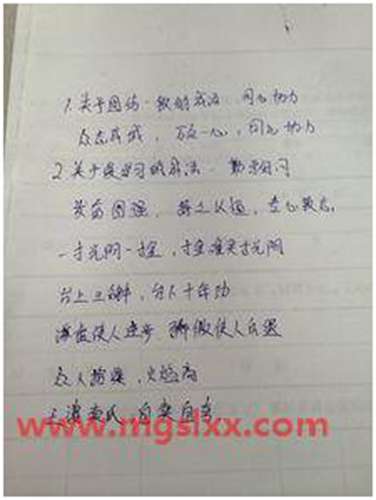 1.关于团结一致的成语: 同心协力
众志成城, 万众一心, 同心协力
2.关于是学习的成语: 勤学好问
发奋图强, 持之以恒, 专心致志
一寸光阴一寸金, 寸金难买寸光阴
台上三分钟, 台下十年功
谦虚使人进步 骄傲使人自罢
众人拾柴, 火焰高
自卖自夸
www.mgslxx.com